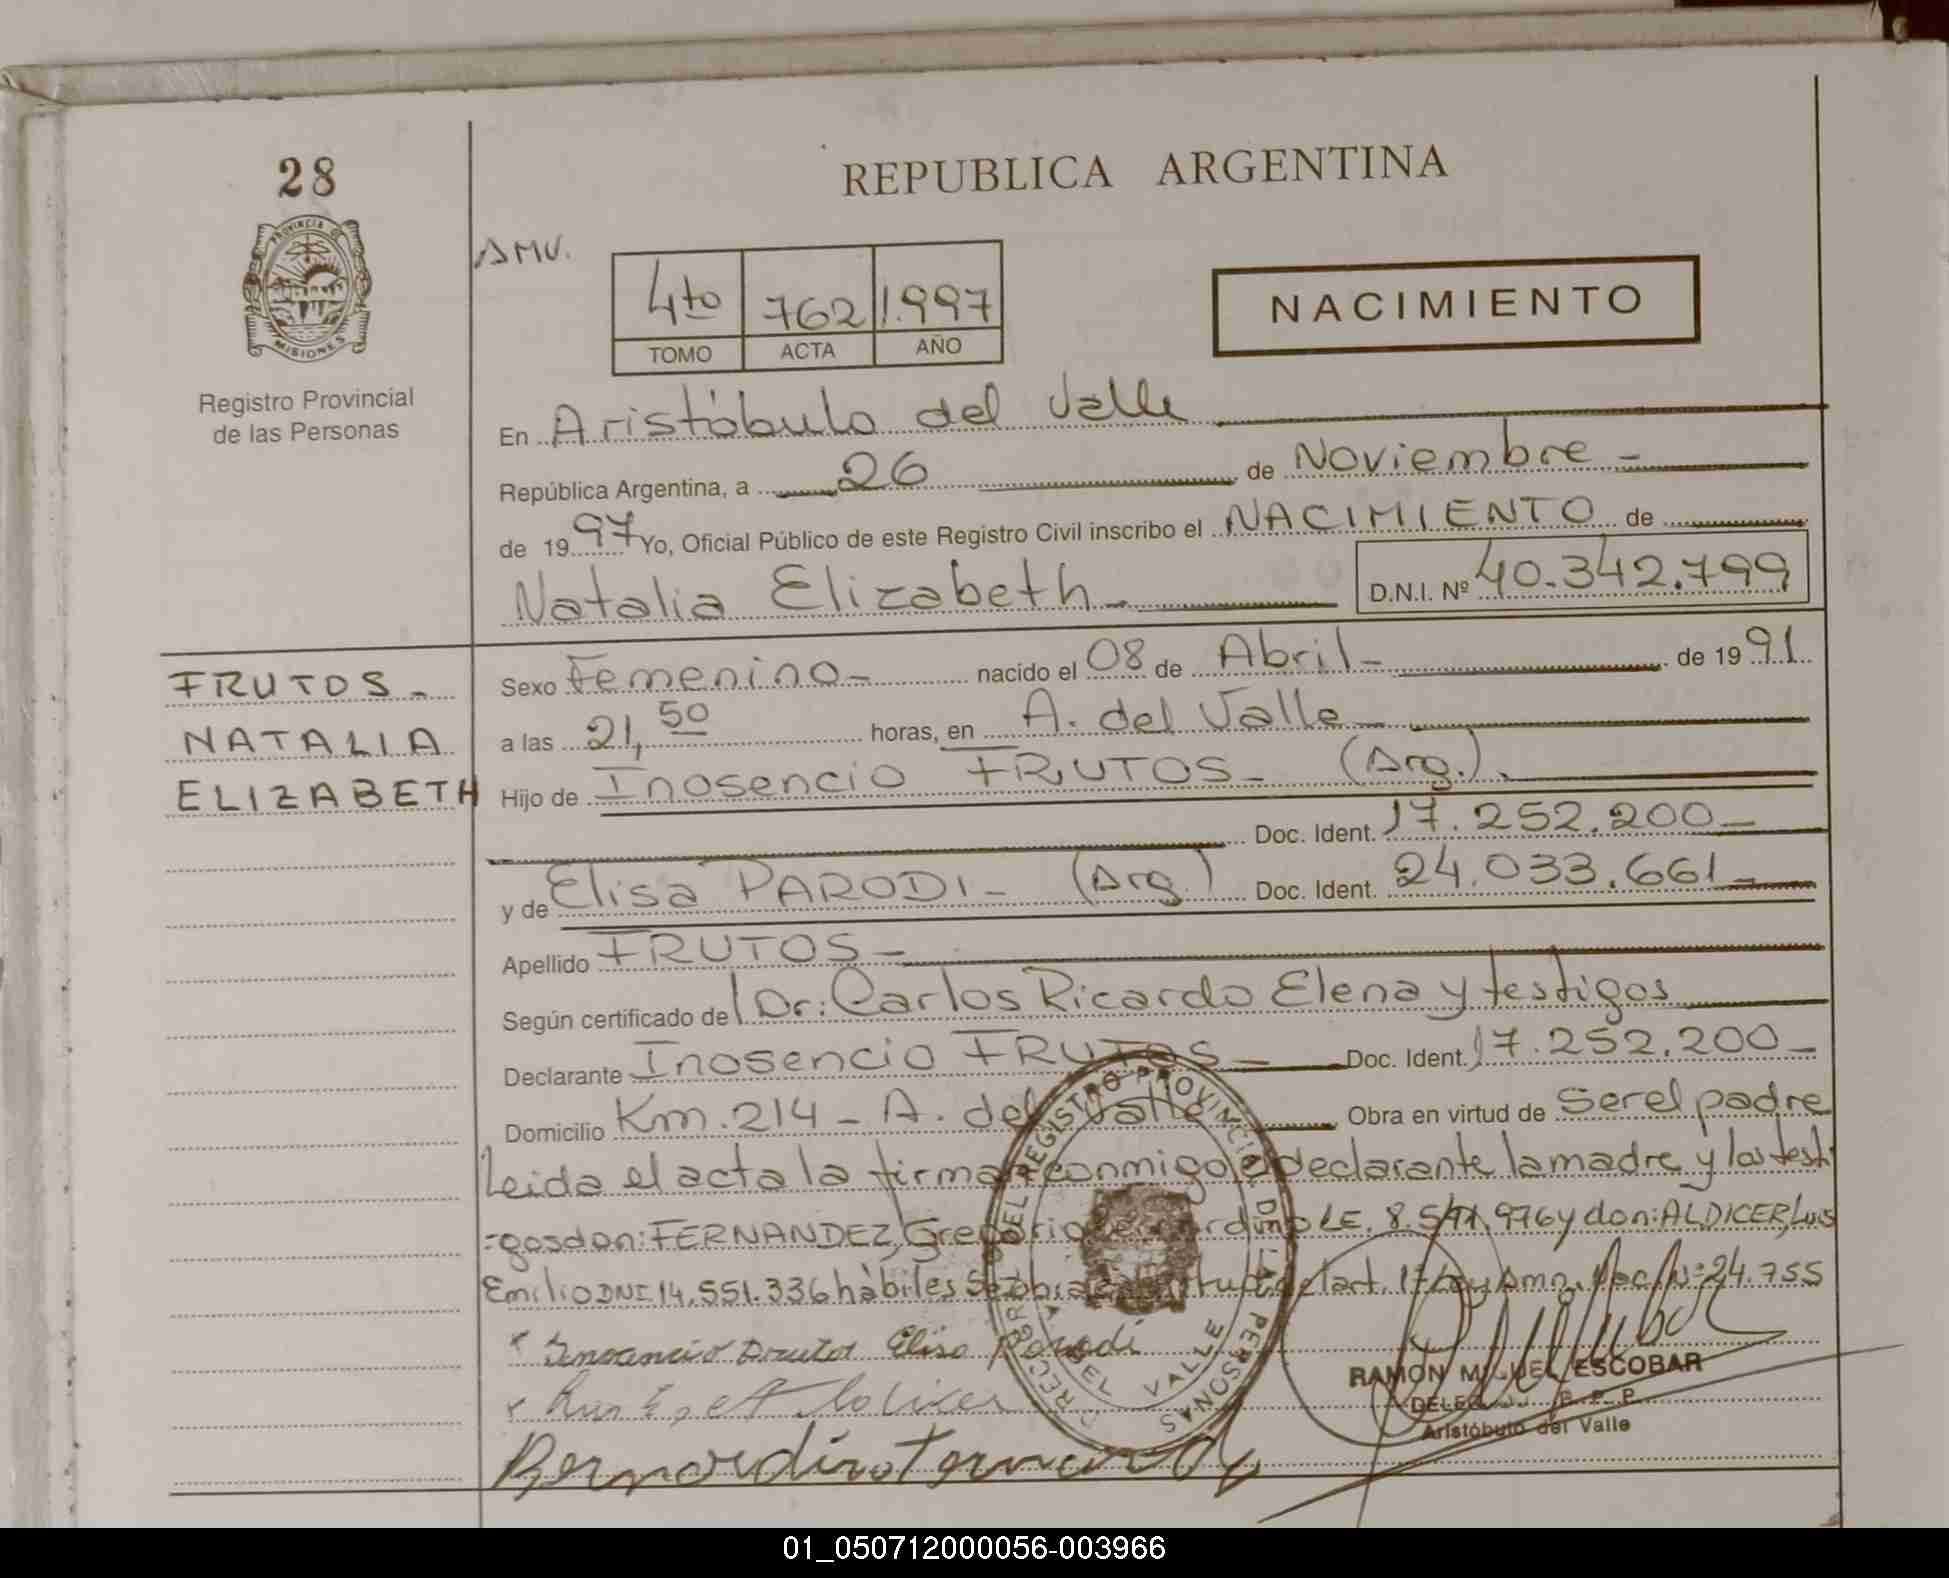 28
REPUBLICA ARGENTINA
PROVINCIA DE
MISIONES
Registro Provincial
de las Personas
AMV.
4to 762 1.997
TOMO ACTA AÑO
NACIMIENTO
En Aristóbulo del Valle
República Argentina, a 26 de Noviembre -
de 1997 Yo, Oficial Público de este Registro Civil inscribo el NACIMIENTO de
Natalia Elizabeth - D.N.I. Nº 40.342.799
FRUTOS -
NATALIA
ELIZABETH
Sexo Femenino - nacido el 08 de Abril - de 1991
a las 21,50 horas, en A. del Valle
Hijo de Inosencio FRUTOS - (Arg.).
Doc. Ident. 17.252.200 -
y de Elisa PARODI - (Arg.) Doc. Ident. 24.033.661 -
Apellido FRUTOS -
Según certificado de Dr: Carlos Ricardo Elena y testigos
Declarante Inosencio FRUTOS - Doc. Ident. 17.252.200 -
Domicilio Km. 214 - A. del Valle Obra en virtud de Ser el padre
Leida el acta la firman conmigo el declarante la madre y los testi
=gos don: FERNANDEZ, Gregorio Bernardino LE. 8.5 .976 y don: ALDICER, Luis
Emilio DNI 14.551.336 hàbiles Se del art. 1º Ley Amn. Dec. Nº 24.755
Elisa Parodi
Bernardino Fernandez
REGISTRO PROVINCIAL DE LAS PERSONAS
DEL VALLE
RAMON MIGUEL ESCOBAR
R. P. P.
Aristóbulo del Valle
01_050712000056-003966